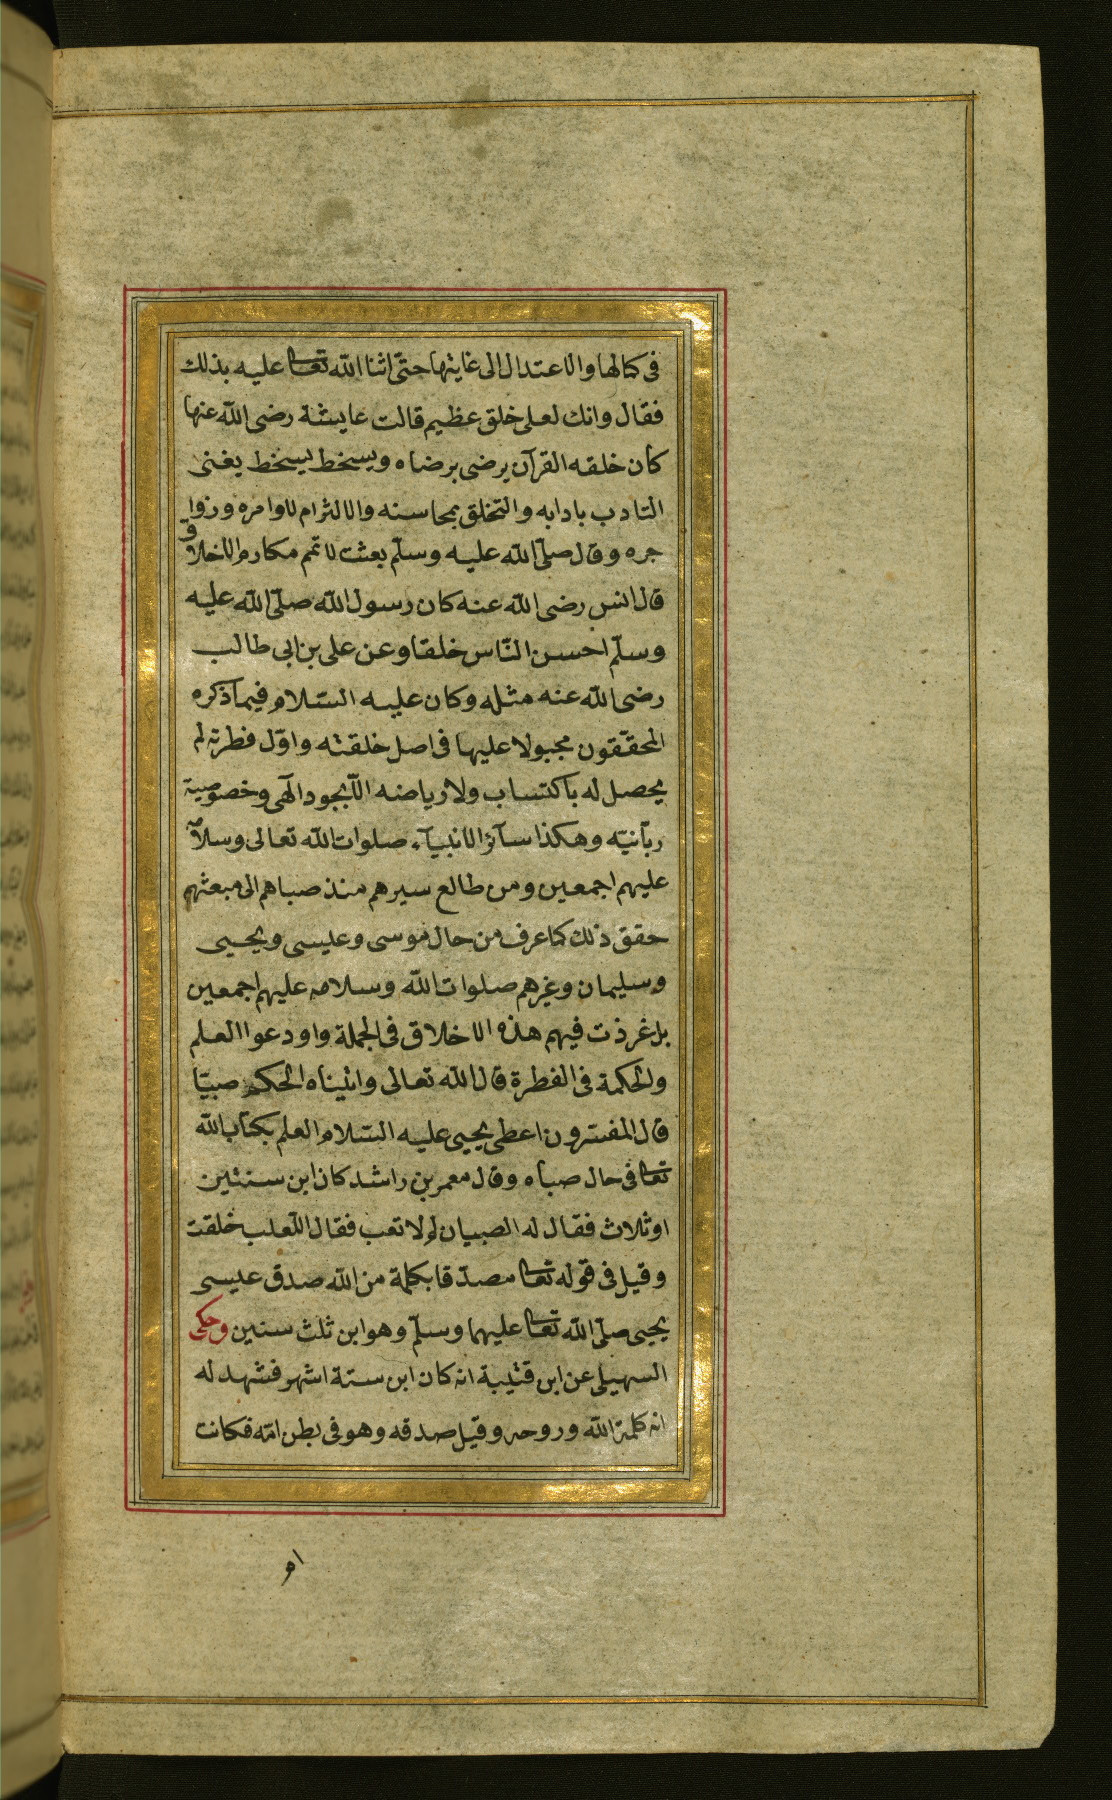 فى كمالها والاعتدال الى غايتها حتّى اثنا اللّه تعالى عليه بذلك
فقال وانك لعلى خلق عظيم قالت عايشة رضى اللّه عنها
كان خلقه القرآن يرضى برضاه ويسخط بسخط يغنى
التادب بادابه والتخلق بمحاسنه والالتزام لاوامره وزوا
جره وقال صلّى اللّه عليه وسلّم بعثت لاتمم مكارم الاخلاق
قال انس رضى اللّه عنه كان رسول اللّه صلّى اللّه عليه
وسلّم احسن النّاس خلقا وعن على بن ابى طالب
رضى اللّه عنه مثله وكان عليه السّلام فيما ذكره
المحقّقون مجبولا عليها فى اصل خلقته واوّل فطرته لم
يحصل له باكتساب ولا رياضه الّا بجود الٓهى وخصوصية
ربّانيّه وهكذا سآئر الانبيآء صلوات اللّه تعالى وسلامه
عليهم اجمعين ومن طالع سيرهم منذ صباهم الى مبعثهم
حقق ذلك كما عرف من حال موسى وعيسى ويحيى
وسليمان وغرهم صلوات اللّه وسلامه عليهم اجمعين
بل غرذت فيهم هذه الاخلاق فى الجملة واودعوا العلم
والحكمة فى الفطرة قال اللّه تعالى واتيناه الحكم صبيّا
قال المفسّرون اعطى يحيى عليه السّلام العلم بكتاب اللّه
تعالى فى حال صباه وقال معمر بن راشد كان ابن سنتين
او ثلاث فقال له الصبيان لم لا تعب فقال اللّعلب خلقت
وقيل فى قوله تعالى مصدّقا بكلمة من اللّه صدق عيسى
يحيى صلّى اللّه تعالى عليهما وسلّم وهو ابن ثلث سنين وحكى
السهيلى عن ابن قتيبة انه كان ابن ستة اشهر فشهد له
انه كلمة اللّه وروحه وقيل صدقه وهو فى بطن امّه فكانت
ام